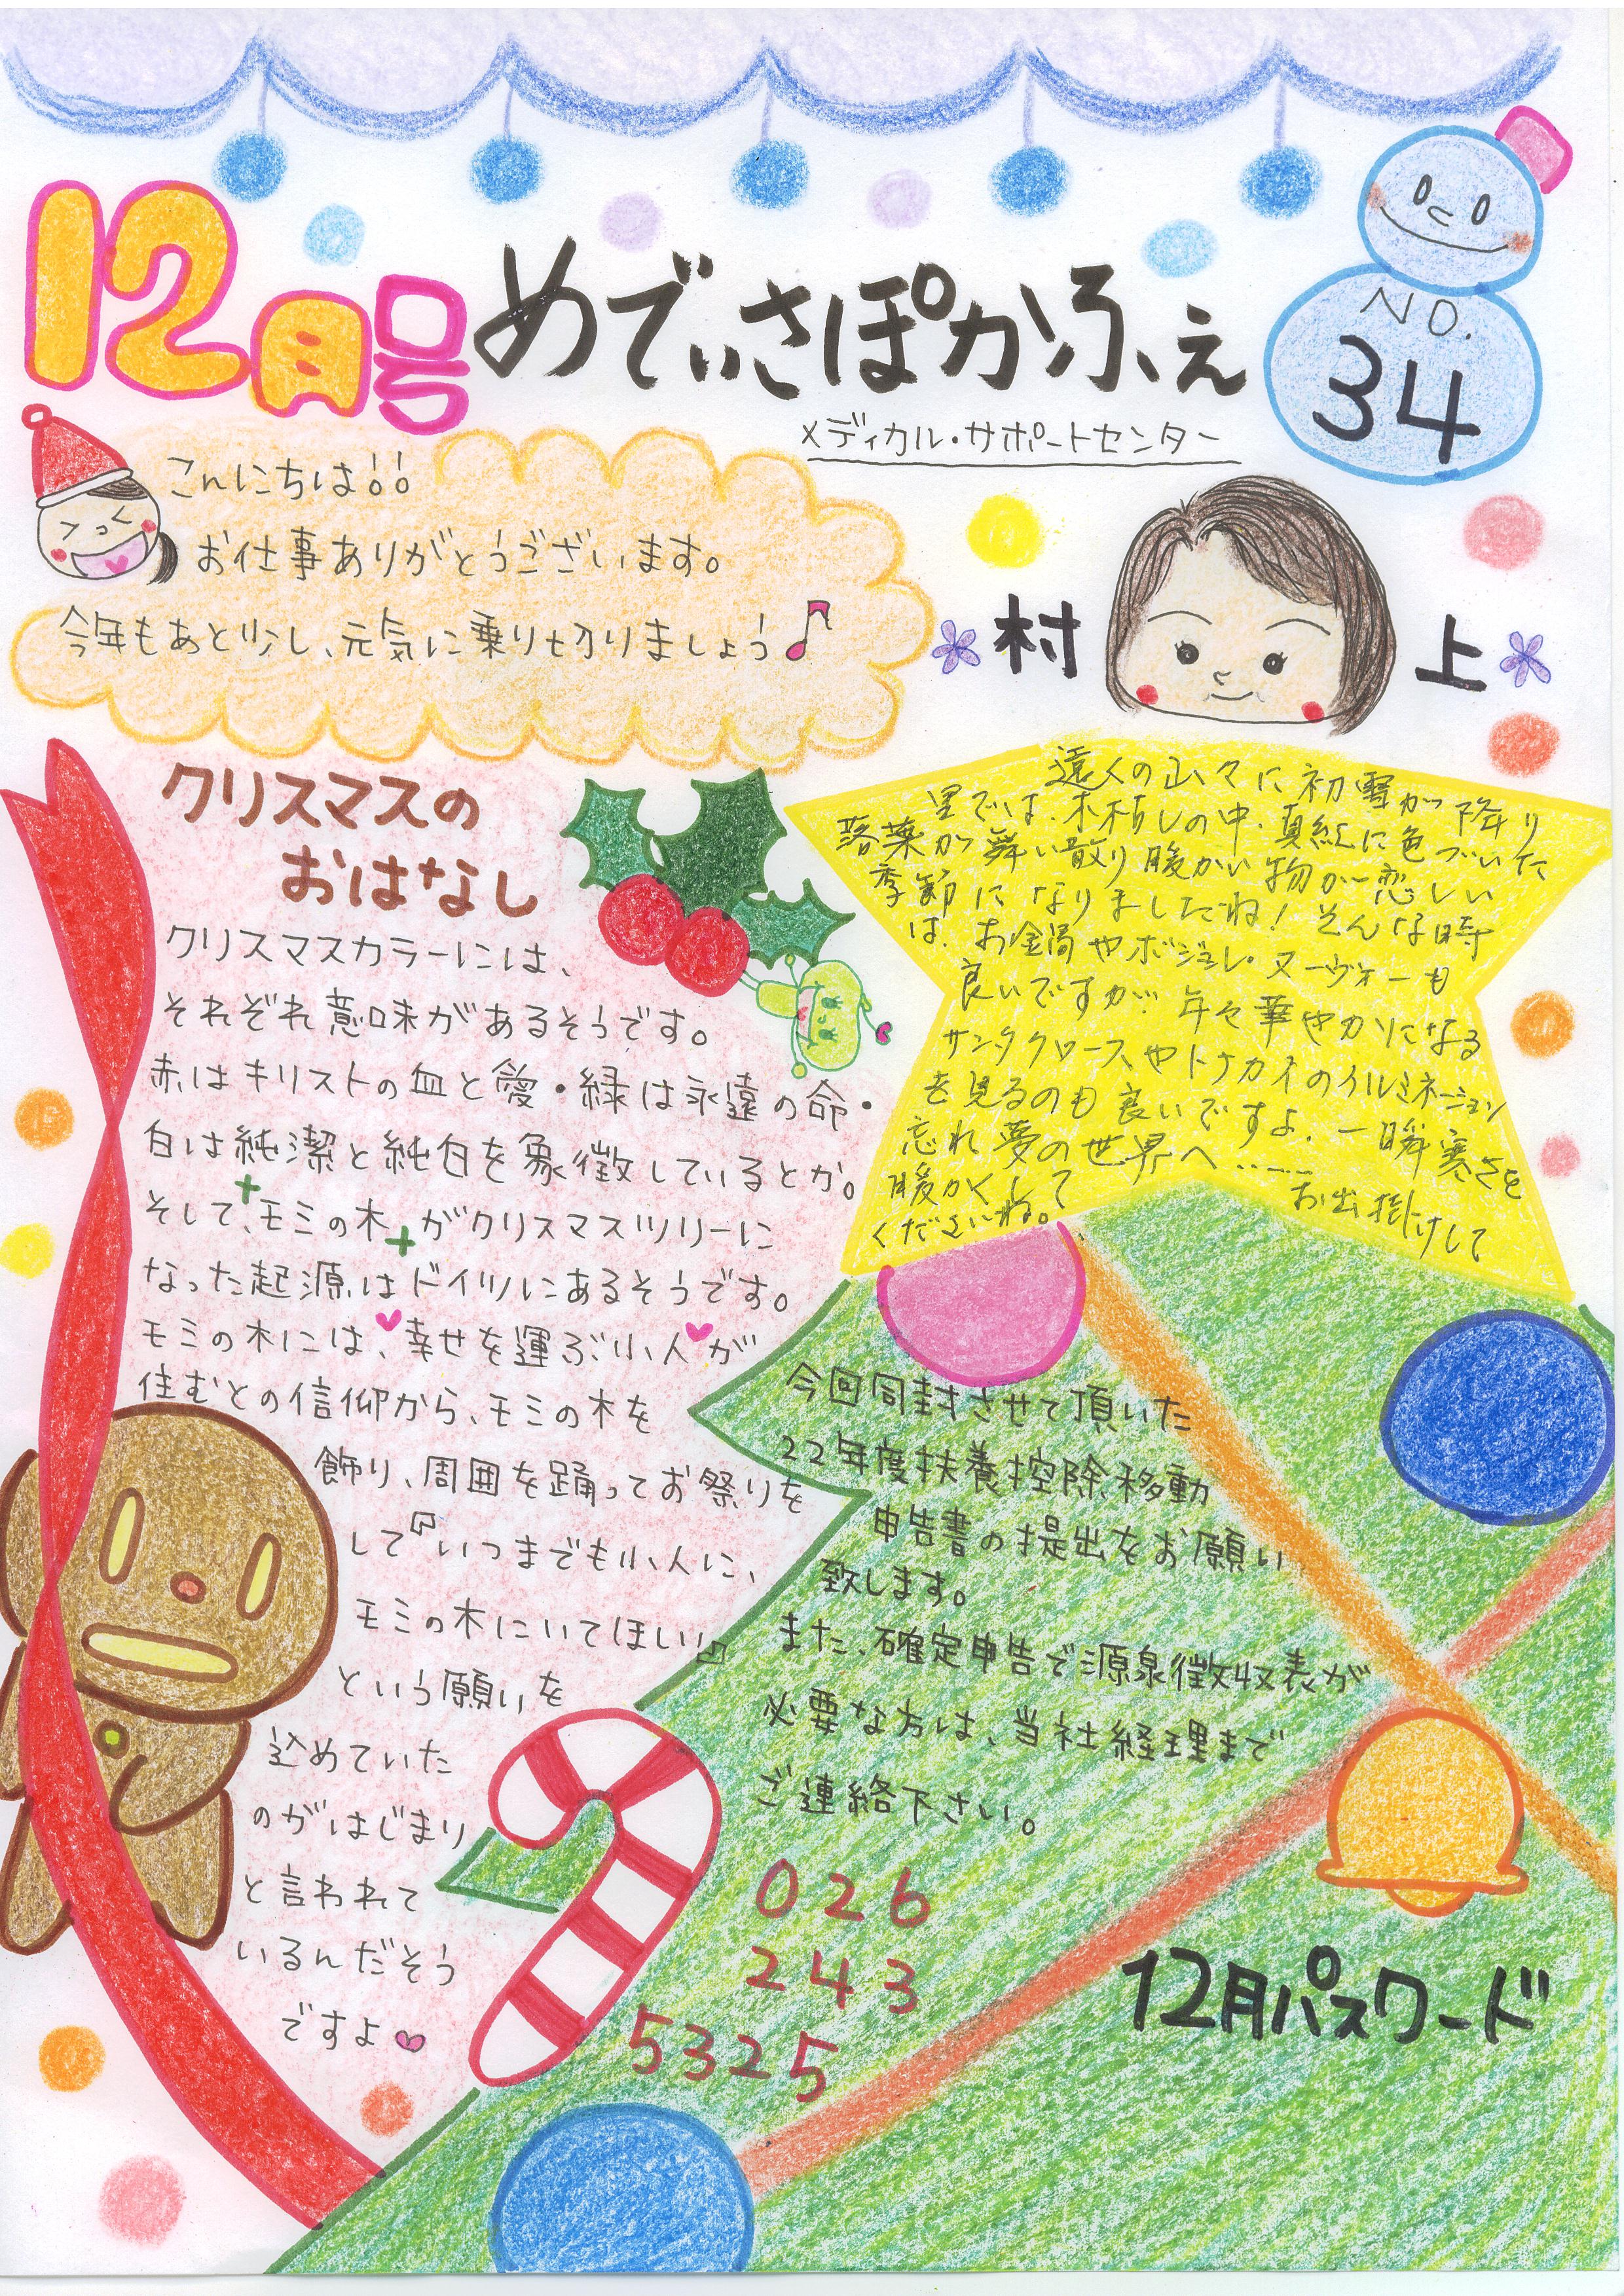 12月号
めでぃさぽかふぇ
NO.
34
メディカル・サポートセンター
こんにちは!!
お仕事ありがとうございます。
今年もあと少し、元気に乗り切りましょう♪
村上
クリスマスの
おはなし
クリスマスカラーには、
それぞれ意味があるそうです。
赤はキリストの血と愛・緑は永遠の命・
白は純潔と純白を象徴しているとか。
そして、モミの木がクリスマスツリーに
なった起源はドイツにあるそうです。
モミの木には、幸せを運ぶ小人が
住むとの信仰から、モミの木を
飾り、周囲を踊ってお祭りを
して『いつまでも小人に、
モミの木にいてほしい』
という願いを
込めていた
のがはじまり
と言われて
いるんだそう
ですよ
遠くの山々に初雪が降り
里では、木枯しの中、真紅に色づいた
落葉が舞い散り暖かい物が恋しい
季節になりましたね!そんな時
は、お鍋やボジョレ・ヌーヴォーも
良いですが、年々華やかになる
サンタクロースやトナカイのイルミネーション
を見るのも良いですよ、一瞬寒さを
忘れ夢の世界へ……
暖かくして お出掛けして
くださいね。
今回同封させて頂いた
22年度扶養控除移動
申告書の提出をお願い
致します。
また、確定申告で源泉徴収表が
必要な方は、当社経理まで
ご連絡下さい。
026
243
5325
12月パスワード